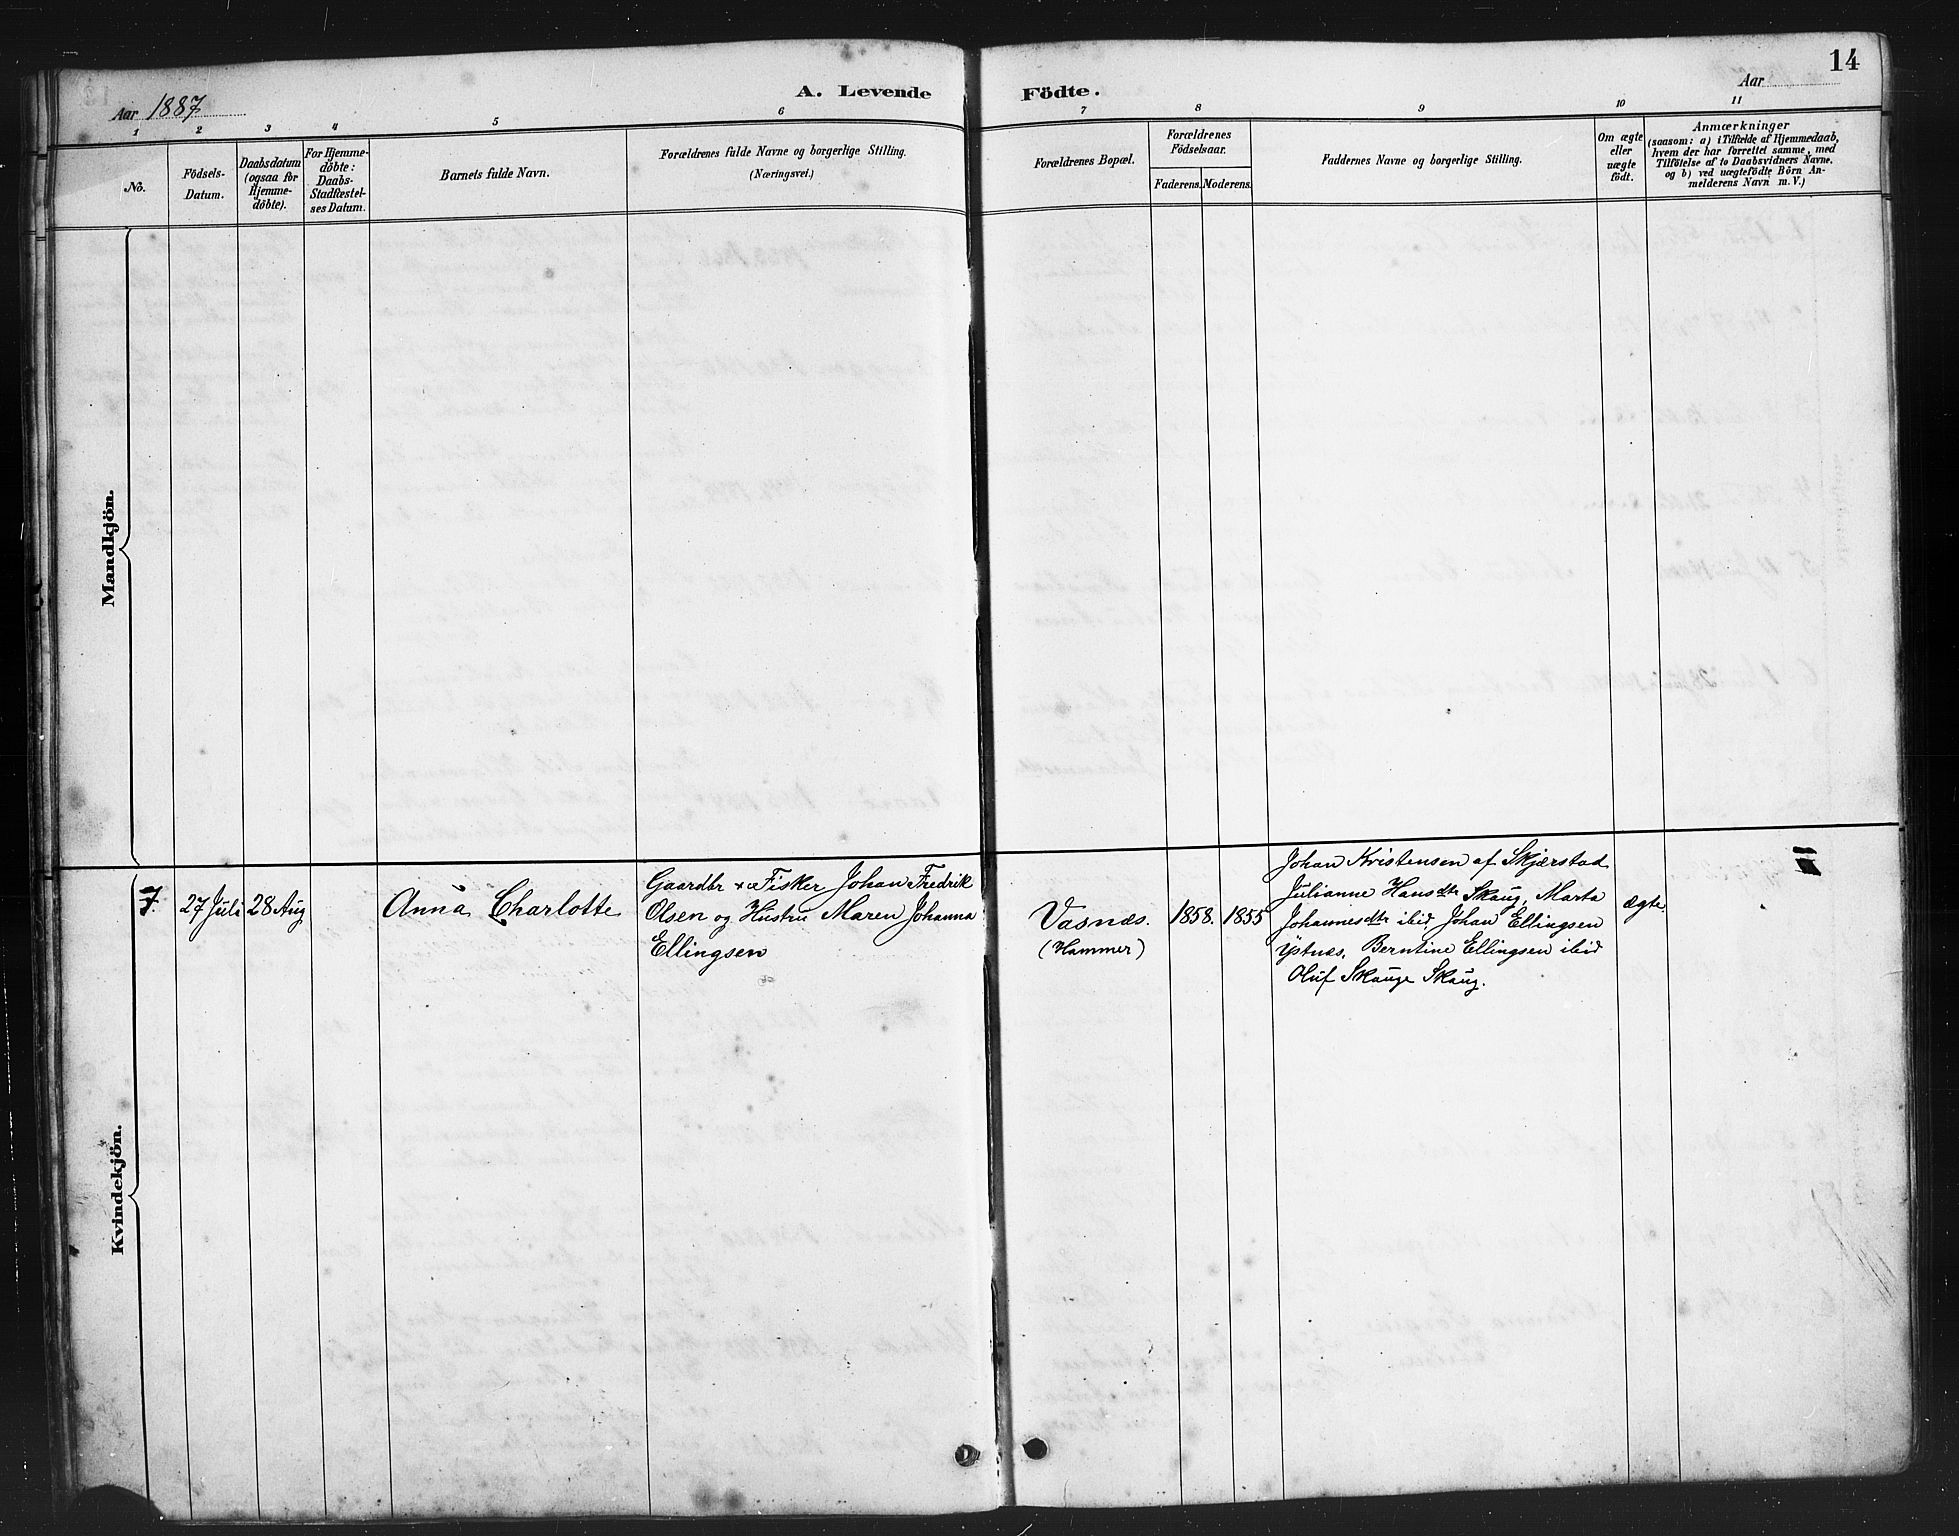 14
Aar 1887
A. Levende
Födte.
Aar
1
2
3
4
5
6
7
8
9
10
11
No.
Födsels-
Datum.
Daabsdatum
(ogsaa for
Hjemme-
döbte).
For Hjemme-
döbte:
Daabs-
Stadfæstel-
ses Datum.
Barnets fulde Navn.
Forældrenes fulde Navne og borgerlige Stilling.
(Næringsvei.)
Forældrenes Bopæl.
Forældrenes
Födselsaar.
Faderens.
Moderens.
Faddernes Navne og borgerlige Stilling.
Om ægte
eller
uægte
födt.
Anmærkninger
(saasom: a) i Tilfælde af Hjemmedaab,
hvem der har forrettet samme, med
Tilföielse af to Daabsvidners Navne.
og b) ved uægtefödte Börn An-
melderens Navn m. V.)
Mandkjön.
Kvindekjön.
7.
27 Juli
28 Aug
Anna Charlotte
Gaardbr Fisker Johan Fredrik
Olsen og Hustru Maren Johanna
Ellingsen
Vasnæs.
(Hammer)
1858.
1855
Johan Kristensen af Skjærstad
Julianne Hansdtr Skaug, Marta
Johannesdtr ibid, Johan Ellingsen
Ystnæs, Berntine Ellingsen ibid
Oluf Skauge Skaug.
Ægte.